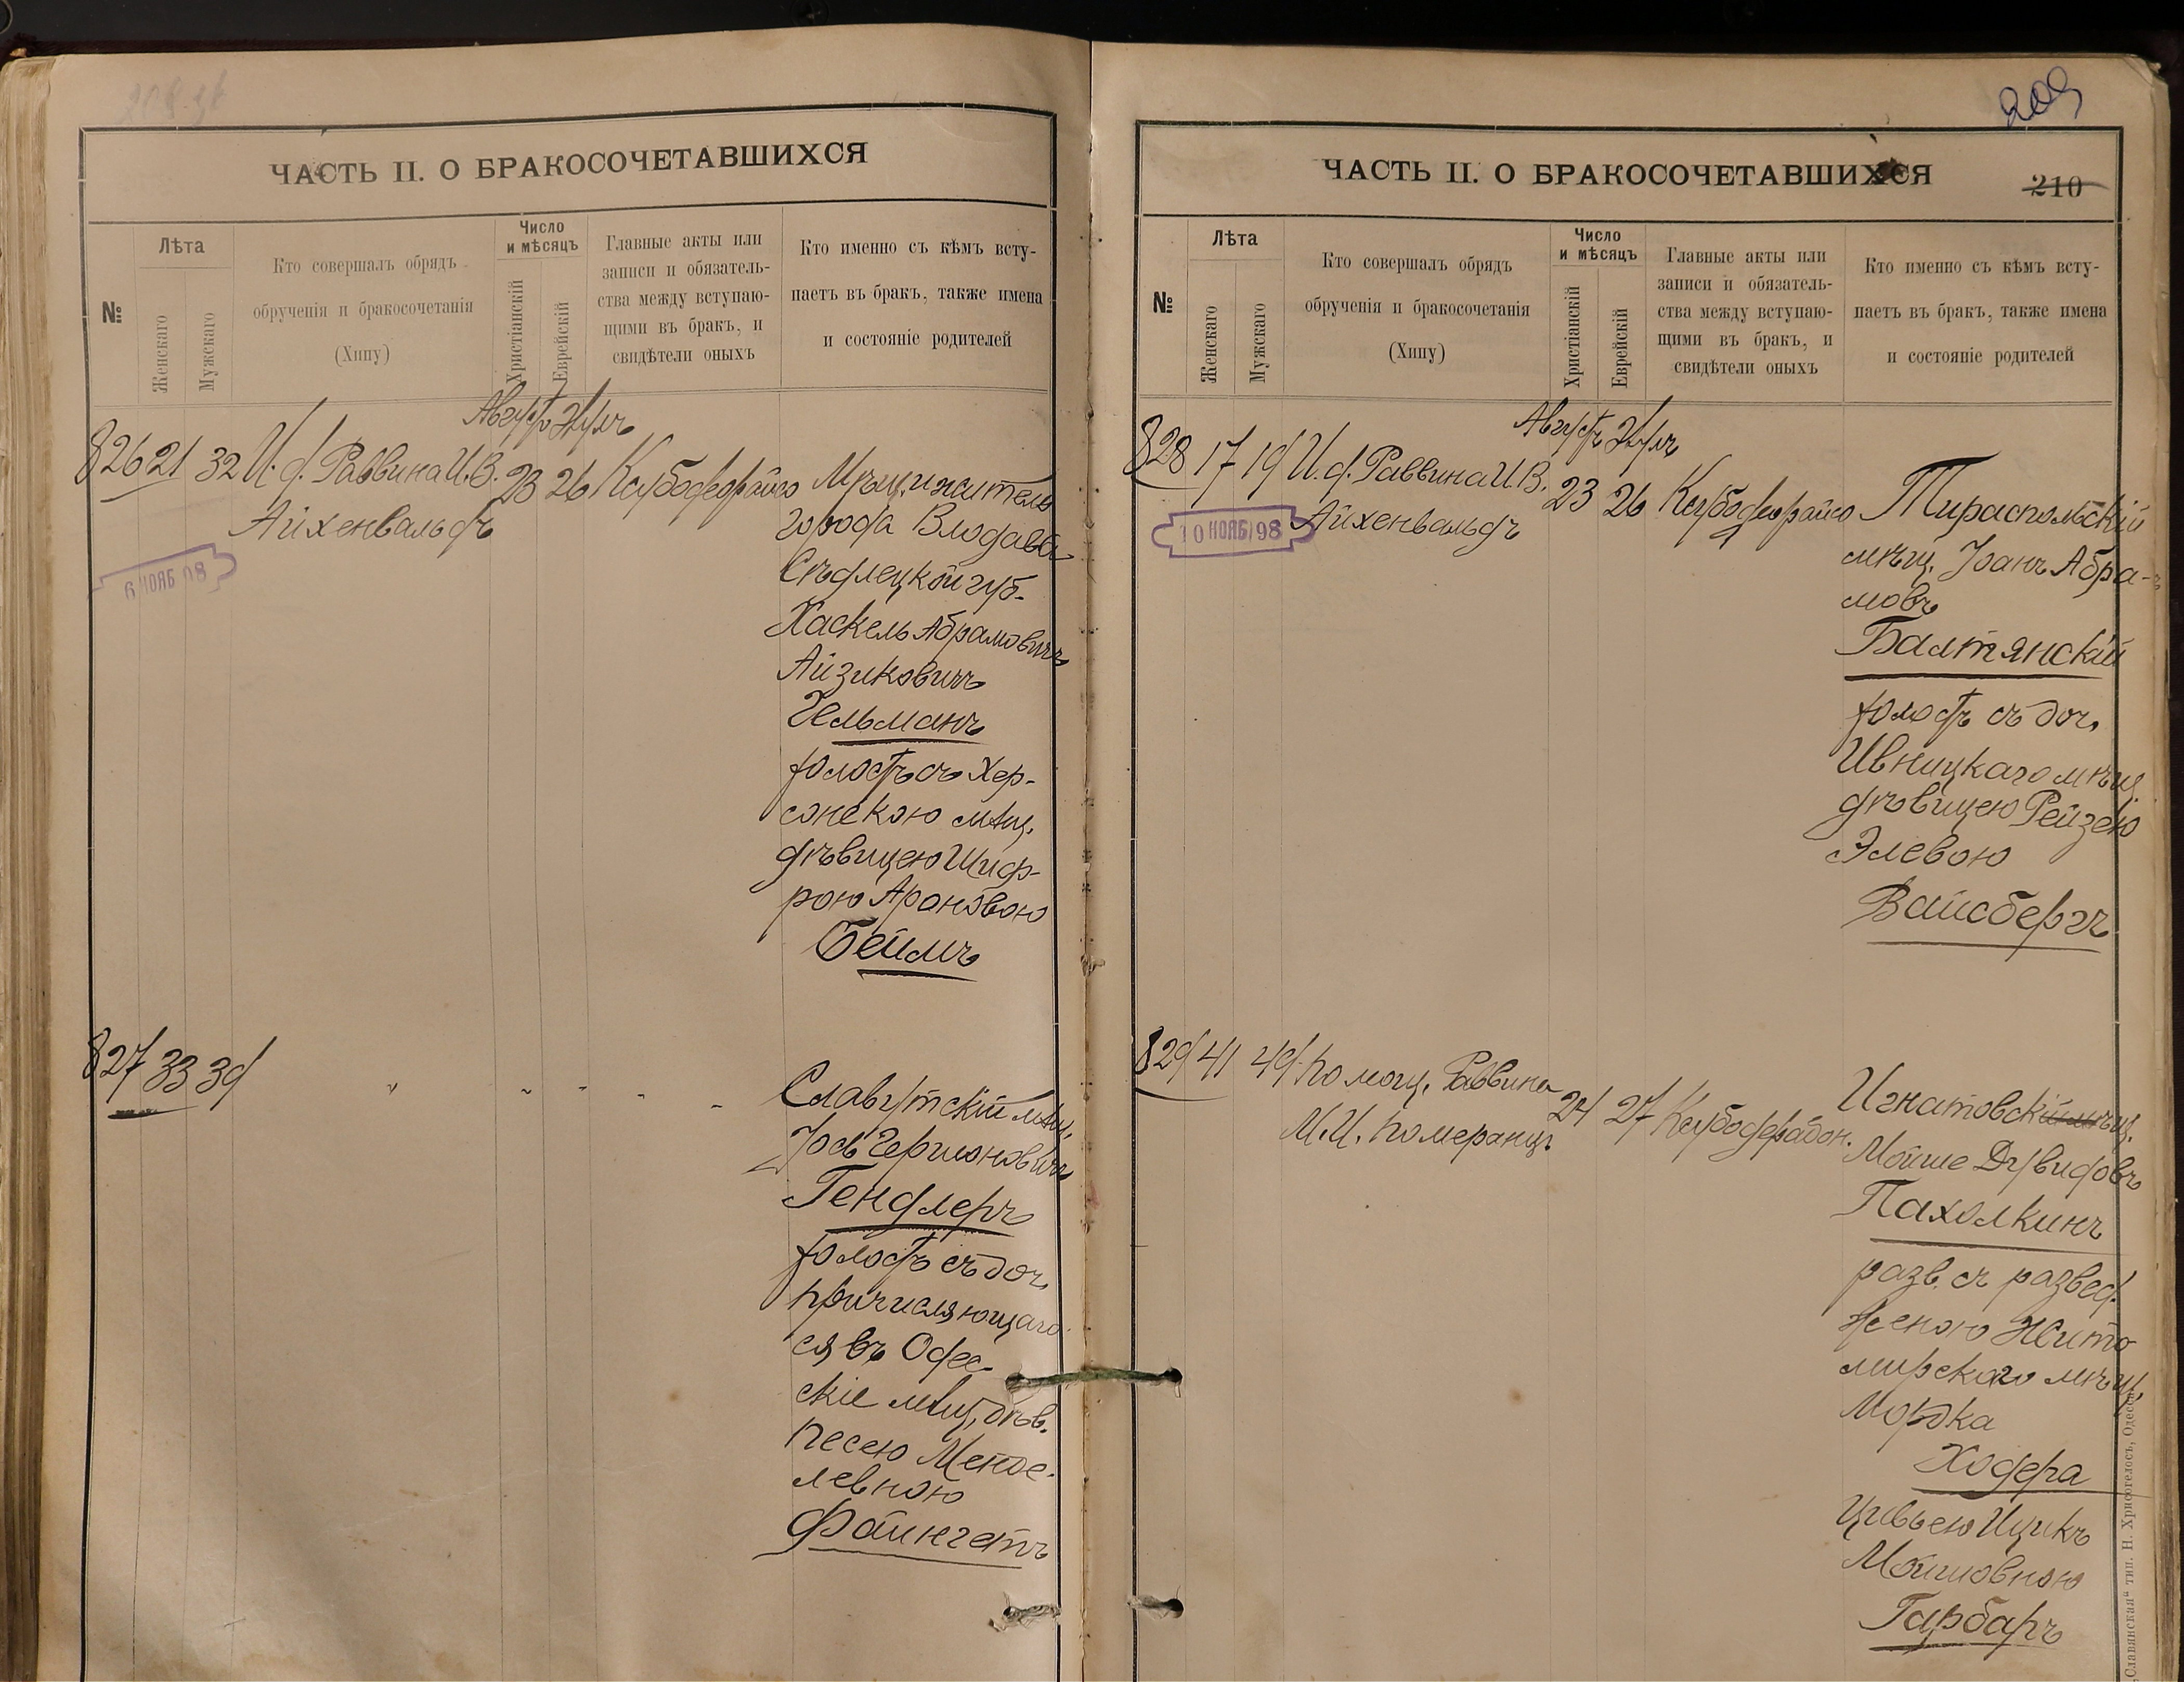 209
ЧАСТЬ II. О БРАКОСОЧЕТАВШИХСЯ
№
Лѣта
Женскаго
Мужскаго
Кто совершалъ обрядъ
обрученія и бракосочетанія
(Хипу)
Число
и мѣсяцъ
Христіанскій
Еврейскій
Главные акты или
записи и обязатель-
ства между вступаю-
щими въ бракъ, и
свидѣтели оныхъ
Кто именно съ кѣмъ всту-
паетъ въ бракъ, также имена
и состояніе родителей
Августъ
826 21 32 И. д. Раввина И. В.
Айхенвальдъ
23 26
6 НОЯБ 98
Мѣщ. и житель
города Влодава
Сѣдлецкой губ.
Хаскель Абрамовичъ
Айзиковичъ
Гельманъ
холостъ съ Хер-
сонскою мѣщ.
дѣвицею Шиф-
рою Ароновою
Беймъ
827 33 39
Славутскій мѣщ.
Гендлеръ
холостъ съ доч.
причисляющаго
ся въ Одес-
скіе мѣщ. дѣв.
Песею Менде-
левною
Файнгетъ
ЧАСТЬ II. О БРАКОСОЧЕТАВШИХСЯ
210
№
Лѣта
Женскаго
Мужскаго
Кто совершалъ обрядъ
обрученія и бракосочетанія
(Хипу)
Число
и мѣсяцъ
Христіанскій
Еврейскій
Главные акты или
записи и обязатель-
ства между вступаю-
щими въ бракъ, и
свидѣтели оныхъ
Кто именно съ кѣмъ всту-
паетъ въ бракъ, также имена
и состояніе родителей
Августъ
828 17 19 И. д. Раввина И. В.
Айхенвальдъ
23 26
10 НОЯБ 98
Тираспольскій
мѣщ. Абра-
мовъ
Балтянскій
холостъ съ доч.
Ивницкаго мѣщ.
дѣвицею Рейзею
Элевою
Вайсбергъ
829 41 49 Помощ. Раввина
М. И. Померанцъ
24 27
Игнатовскій мѣщ.
Мойше Дувидовъ
Пахолкинъ
разв. съ развед.
женою Жито
мирскаго мѣщ.
Мордка
Ходера
Цивьею Ицикъ
Мойшовною
Гарбаръ
„Славянская“ тип. Н. Хрисогелосъ, Одесса